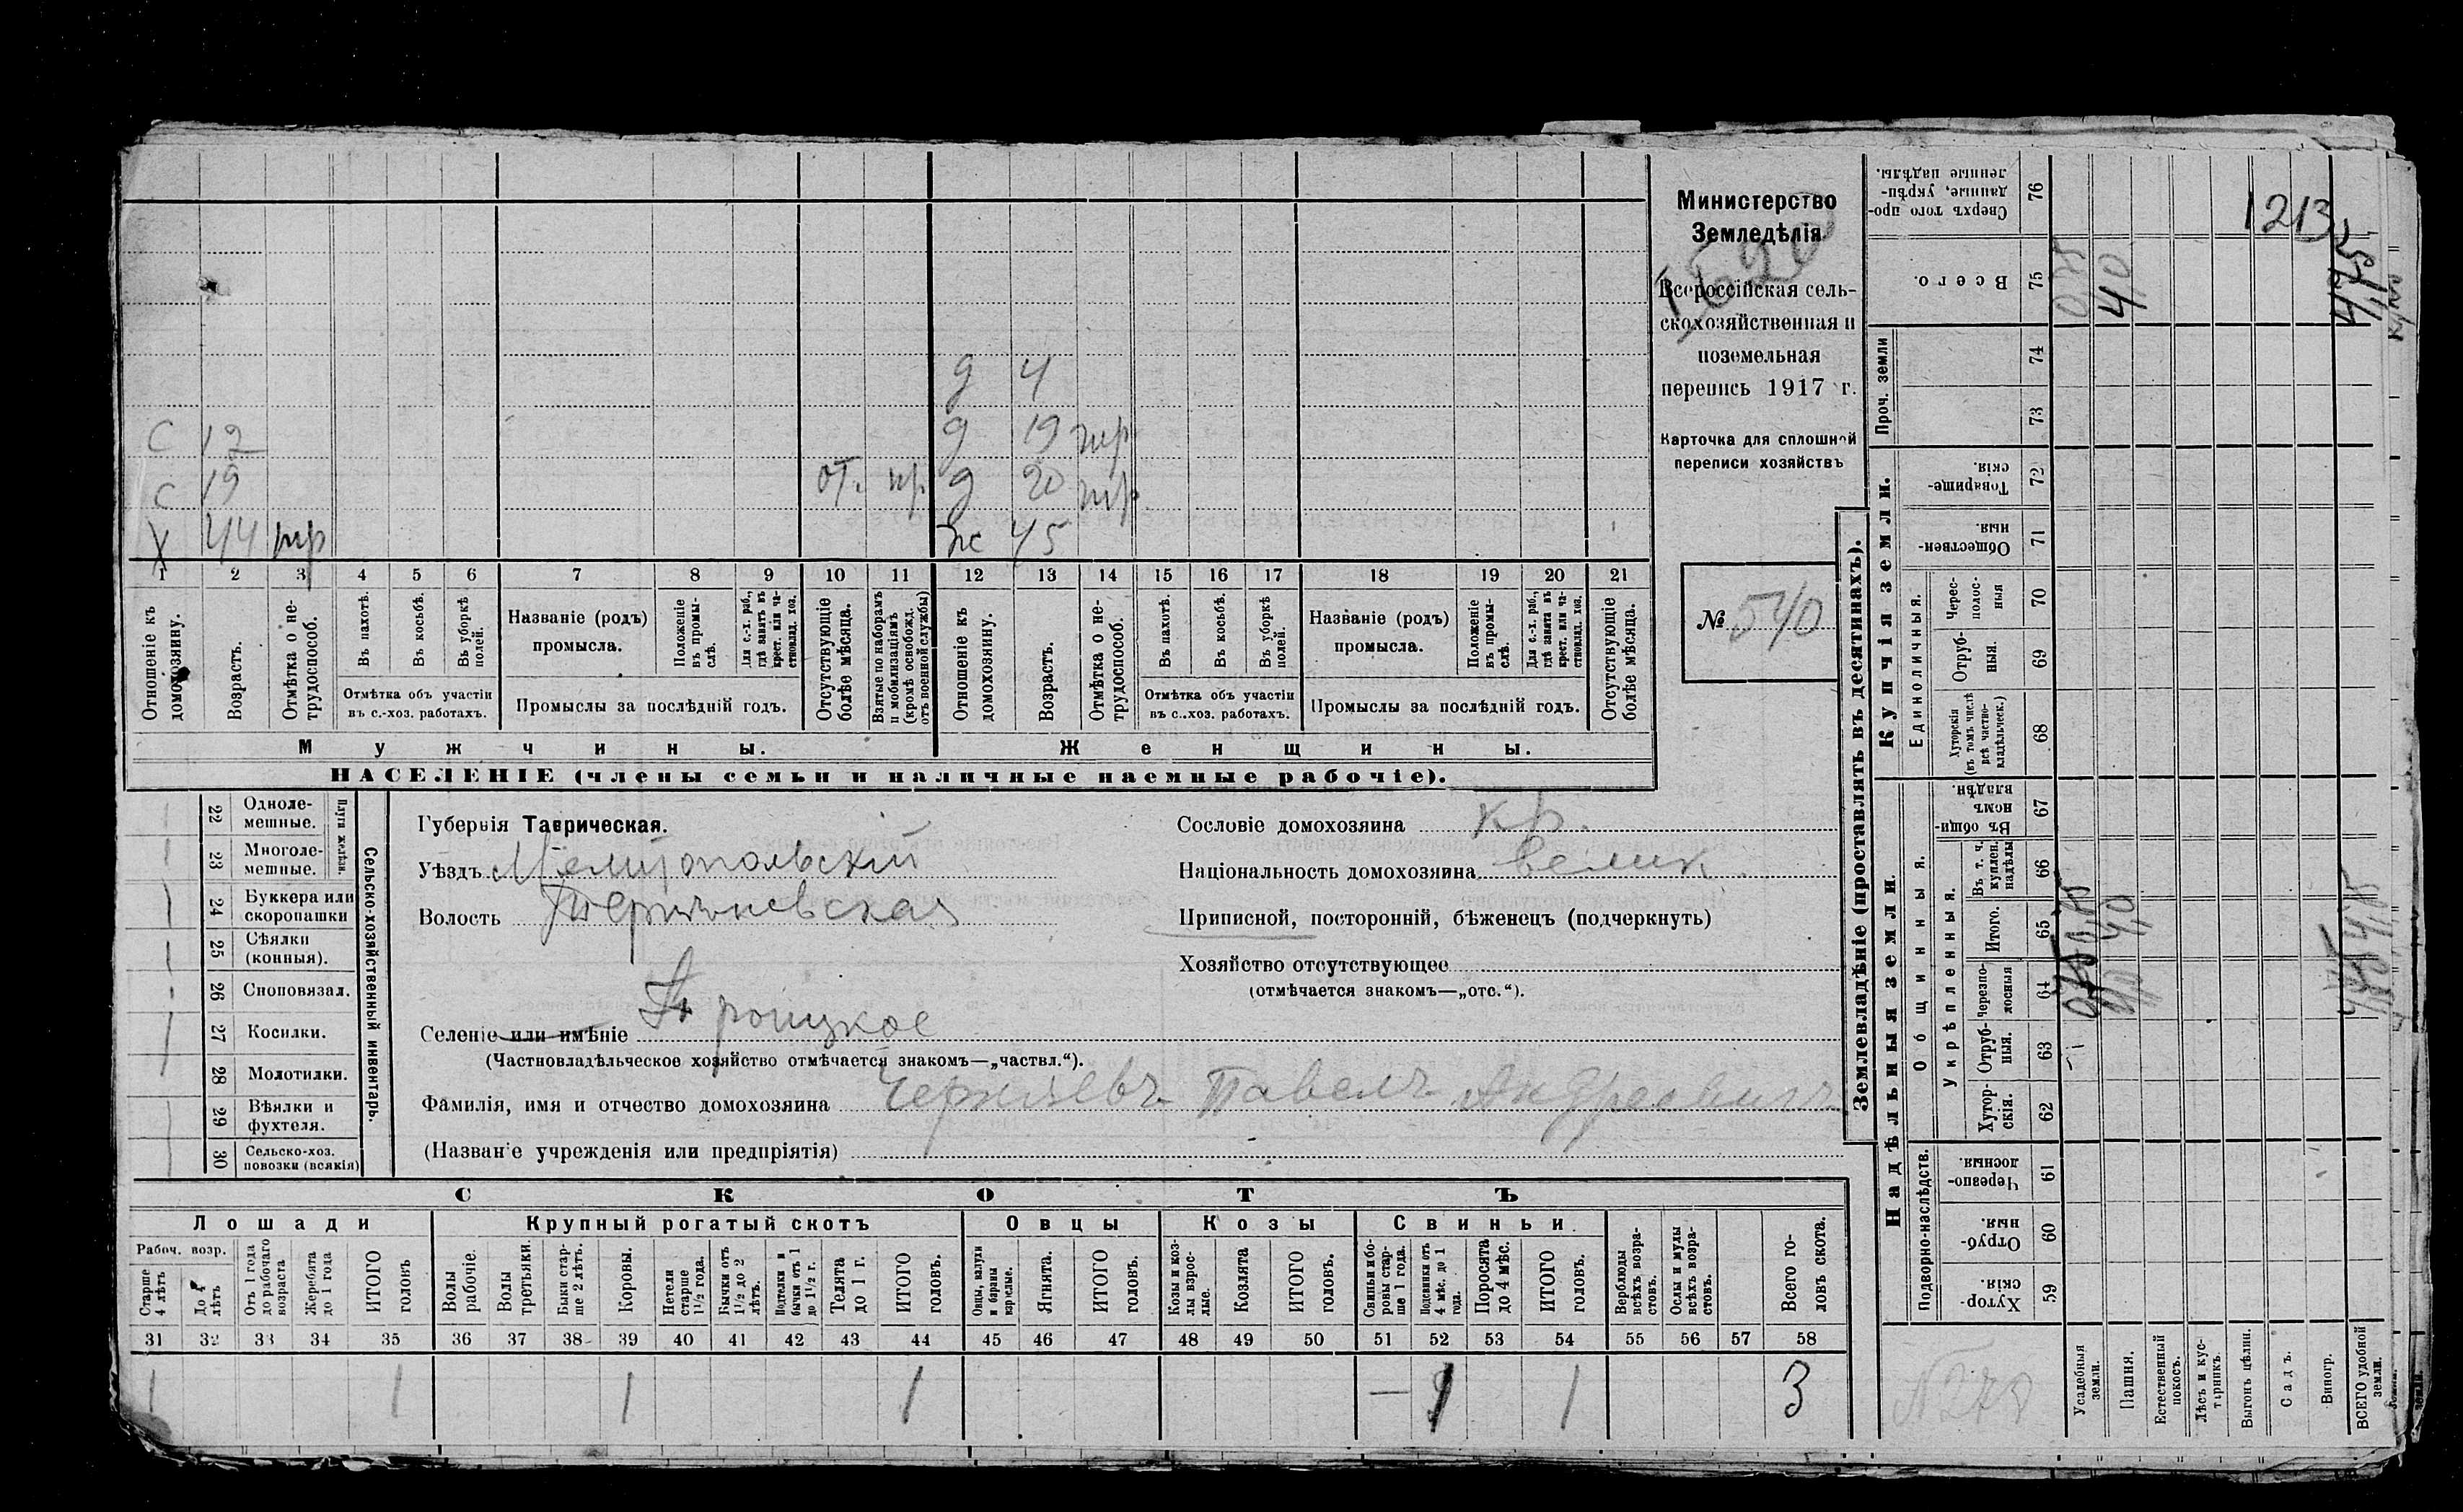 д 4
С 12 д 19 тр
С 19 от. пр д 20 тр
Х 44 тр ж 45
1 2 3 4 5 6 7 8 9 10 11 12 13 14 15 16 17 18 19 20 21
Отношеніе къ домохозяину.
Возрастъ.
Отмѣтка о не-
трудоспособ.
Въ пахотѣ.
Въ косьбѣ.
Въ уборкѣ
полей.
Отмѣтка объ участіи
въ с.-хоз. работахъ.
Названіе (родъ)
промысла.
Положеніе
въ промы-
слѣ.
Для с.-х. раб.,
гдѣ занятъ въ
крест. или ча-
стновлад. хоз.
Промыслы за послѣдній годъ.
Отсутствующіе
болѣе мѣсяца.
Взятые по наборамъ
и мобилизаціямъ
(кромѣ освобожд.
отъ военной службы)
Отношеніе къ
домохозяину.
Возрастъ.
Отмѣтка о не-
трудоспособ.
Въ пахотѣ.
Въ косьбѣ.
Въ уборкѣ
полей.
Отмѣтка объ участіи
въ с..хоз. работахъ.
Названіе (родъ)
промысла.
Положеніе
въ промы-
слѣ.
Для с.-х. раб.,
гдѣ занята въ
крест. или ча-
стновлад. хоз.
Промыслы за послѣдній годъ.
Отсутствующіе
болѣе мѣсяца.
Мужчины. Женщины.
НАСЕЛЕНІЕ (члены семьи и наличные наемные рабочіе).
Министерство
Земледѣлія
Всероссійская сель-
скохозяйственная и
поземельная
перепись 1917 г.
Карточка для сплошной
переписи хозяйствъ
№ 540
Сельско-хозяйственный инвентарь.
Плуги желѣзн.
22 Одноле-
мешные.
23 Многоле-
мешные.
24 Буккера или
скоропашки
25 Сѣялки
(конныя).
26 Сноповязал.
27 Косилки.
28 Молотилки.
29 Вѣялки и
фухтеля.
30 Сельско-хоз.
повозки (всякія)
Губернія Таврическая.
Уѣздъ Мелитопольскій
Волость
Селеніе или имѣніе Троицкое
(Частновладѣльческое хозяйство отмѣчается знакомъ—„частвл.“).
Фамилія, имя и отчество домохозяина Черняевъ Павелъ Андреевичъ
(Названіе учрежденія или предпріятія)
Сословіе домохозяина кр.
Національность домохозяина велик.
Приписной, посторонній, бѣженецъ (подчеркнуть)
Хозяйство отсутствующее
(отмѣчается знакомъ—„отс.“).
СКОТЪ
Лошади Крупный рогатый скотъ Овцы Козы Свиньи
Рабоч. возр.
Старше
4 лѣтъ
До 4
лѣтъ
Отъ 1 года
до рабочаго
возраста
Жеребята
до 1 года
ИТОГО
головъ
Волы
рабочіе.
Волы
третьяки.
Быки стар-
ше 2 лѣтъ.
Коровы.
Нетели
старше
1 1/2 года.
Бычки отъ
1 1/2 до 2
лѣтъ.
Подтелки и
бычки отъ 1
до 1 1/2 г.
Телята
до 1 г.
ИТОГО
головъ.
Овцы, валухи
и бараны
взрослые.
Ягнята.
ИТОГО
головъ.
Козы и коз-
лы взрос-
лые.
Козлята
ИТОГО
головъ.
Свиньи и бо-
ровы стар-
ше 1 года.
Подсвинки отъ
4 мѣс. до 1
года.
Поросята
до 4 мѣс.
ИТОГО
головъ.
Верблюды
всѣхъ возра-
стовъ.
Ослы и мулы
всѣхъ возра-
стовъ.
Всего го-
ловъ скота.
31 32 33 34 35 36 37 38 39 40 41 42 43 44 45 46 47 48 49 50 51 52 53 54 55 56 57 58
1 1 1 1 — 1 1 3
Землевладѣніе (проставлять въ десятинахъ).
Купчія земли.
Надѣльныя земли.
Проч. земли
Единоличныя.
Общинныя.
Укрѣпленныя.
Подворно-наслѣдств.
Сверхъ того про-
данные, укрѣп-
ленные надѣлы.
76
Всего.
75
74
73
Товарище-
скія.
72
Обществен-
ныя.
71
Черес-
полос-
ныя
70
Отруб-
ныя.
69
Хуторскія
(въ томъ числѣ
всѣ частно-
владѣльческ.)
68
Въ общин-
номъ
владѣн.
67
Въ т. ч.
куплен.
надѣлы
66
Итого.
65
Черезпо-
лосныя
64
Отруб-
ныя.
63
Хутор-
скія.
62
Черезпо-
лосныя.
61
Отруб-
ныя.
60
Хутор-
скія.
59
Усадебныя
земли.
Пашня.
Естественный
покосъ.
Лѣсъ и кус-
тарникъ.
Выгонъ цѣлин.
Садъ.
Виногр.
ВСЕГО удобной
земли.
1213
0,75
4,0
4,75